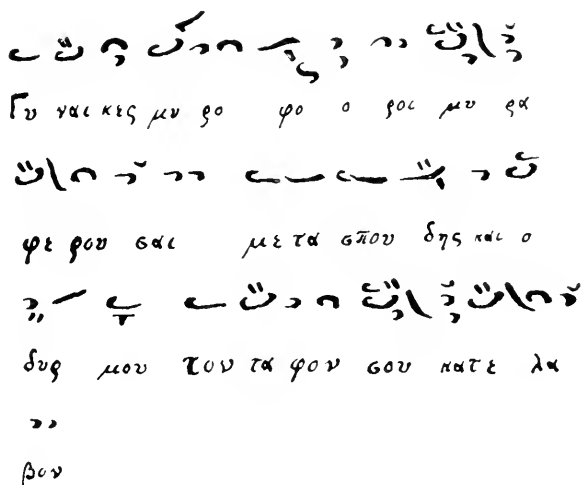 Γυ ναι κες μυ ρο φο ο ροι μυ ρα
φε ρου σαι με τα σπου δης και ο
δυρ μου τον τα φον σου κατε λα
βον